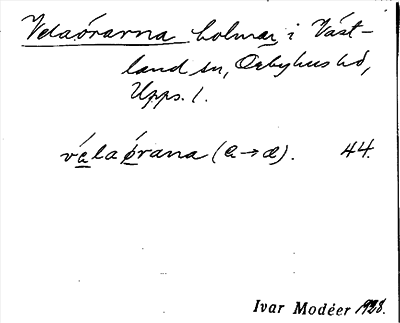 Velaörarna holmar i Väst-
land sn, Örbyhus hd,
Upps. l.
vélaö́rana (a→æ). 44.
Ivar Modéer 1928.